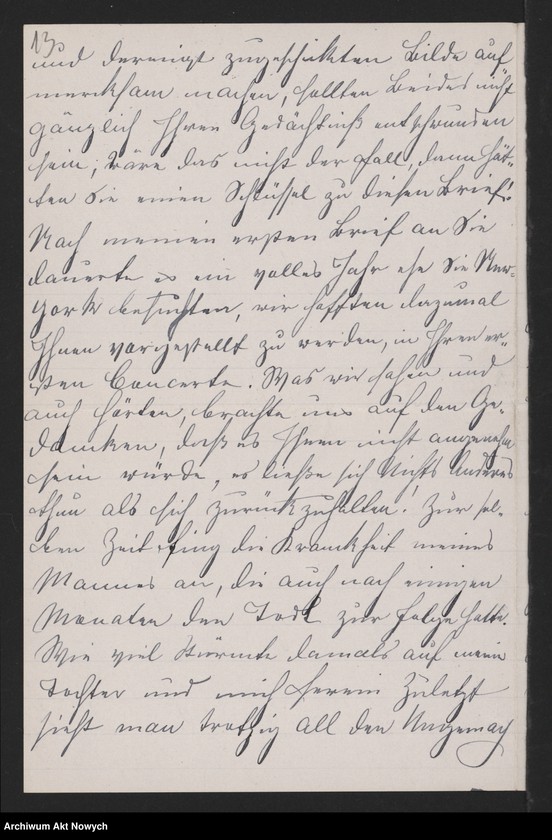 13.
und dereinigt zugeschickten Bilde auf
merksam machen, sollten Beides nicht
gänzlich Ihren Gedächtniß entschwunden
sein; wäre das nicht der Fall, dann hät-
ten Sie einen Schlüssel zu diesen Brief!
Nach meinen ersten Brief an Sie
dauerte es ein volles Jahr ehe Sie New-
York besuchten, wir hofften dazumal
Ihnen vorgestellt zu werden, in Ihren er-
sten Concerte. Was wir sahen und
auch hörten, brachte uns auf den Ge-
danken, daß es Ihnen nicht angenehm
sein würde, es ließe sich Nichts Anderes
thun als sich zurückzuhalten! Zur sel-
ben Zeit fing die Krankheit meines
Mannes an, die auch nach einigen
Monaten den Tod zur Folge hatte.
Wie viel stürmte damals auf meine
Tochter und mich herein Zuletzt
sieht man trotzig all den Ungemach
Archiwum Akt Nowych